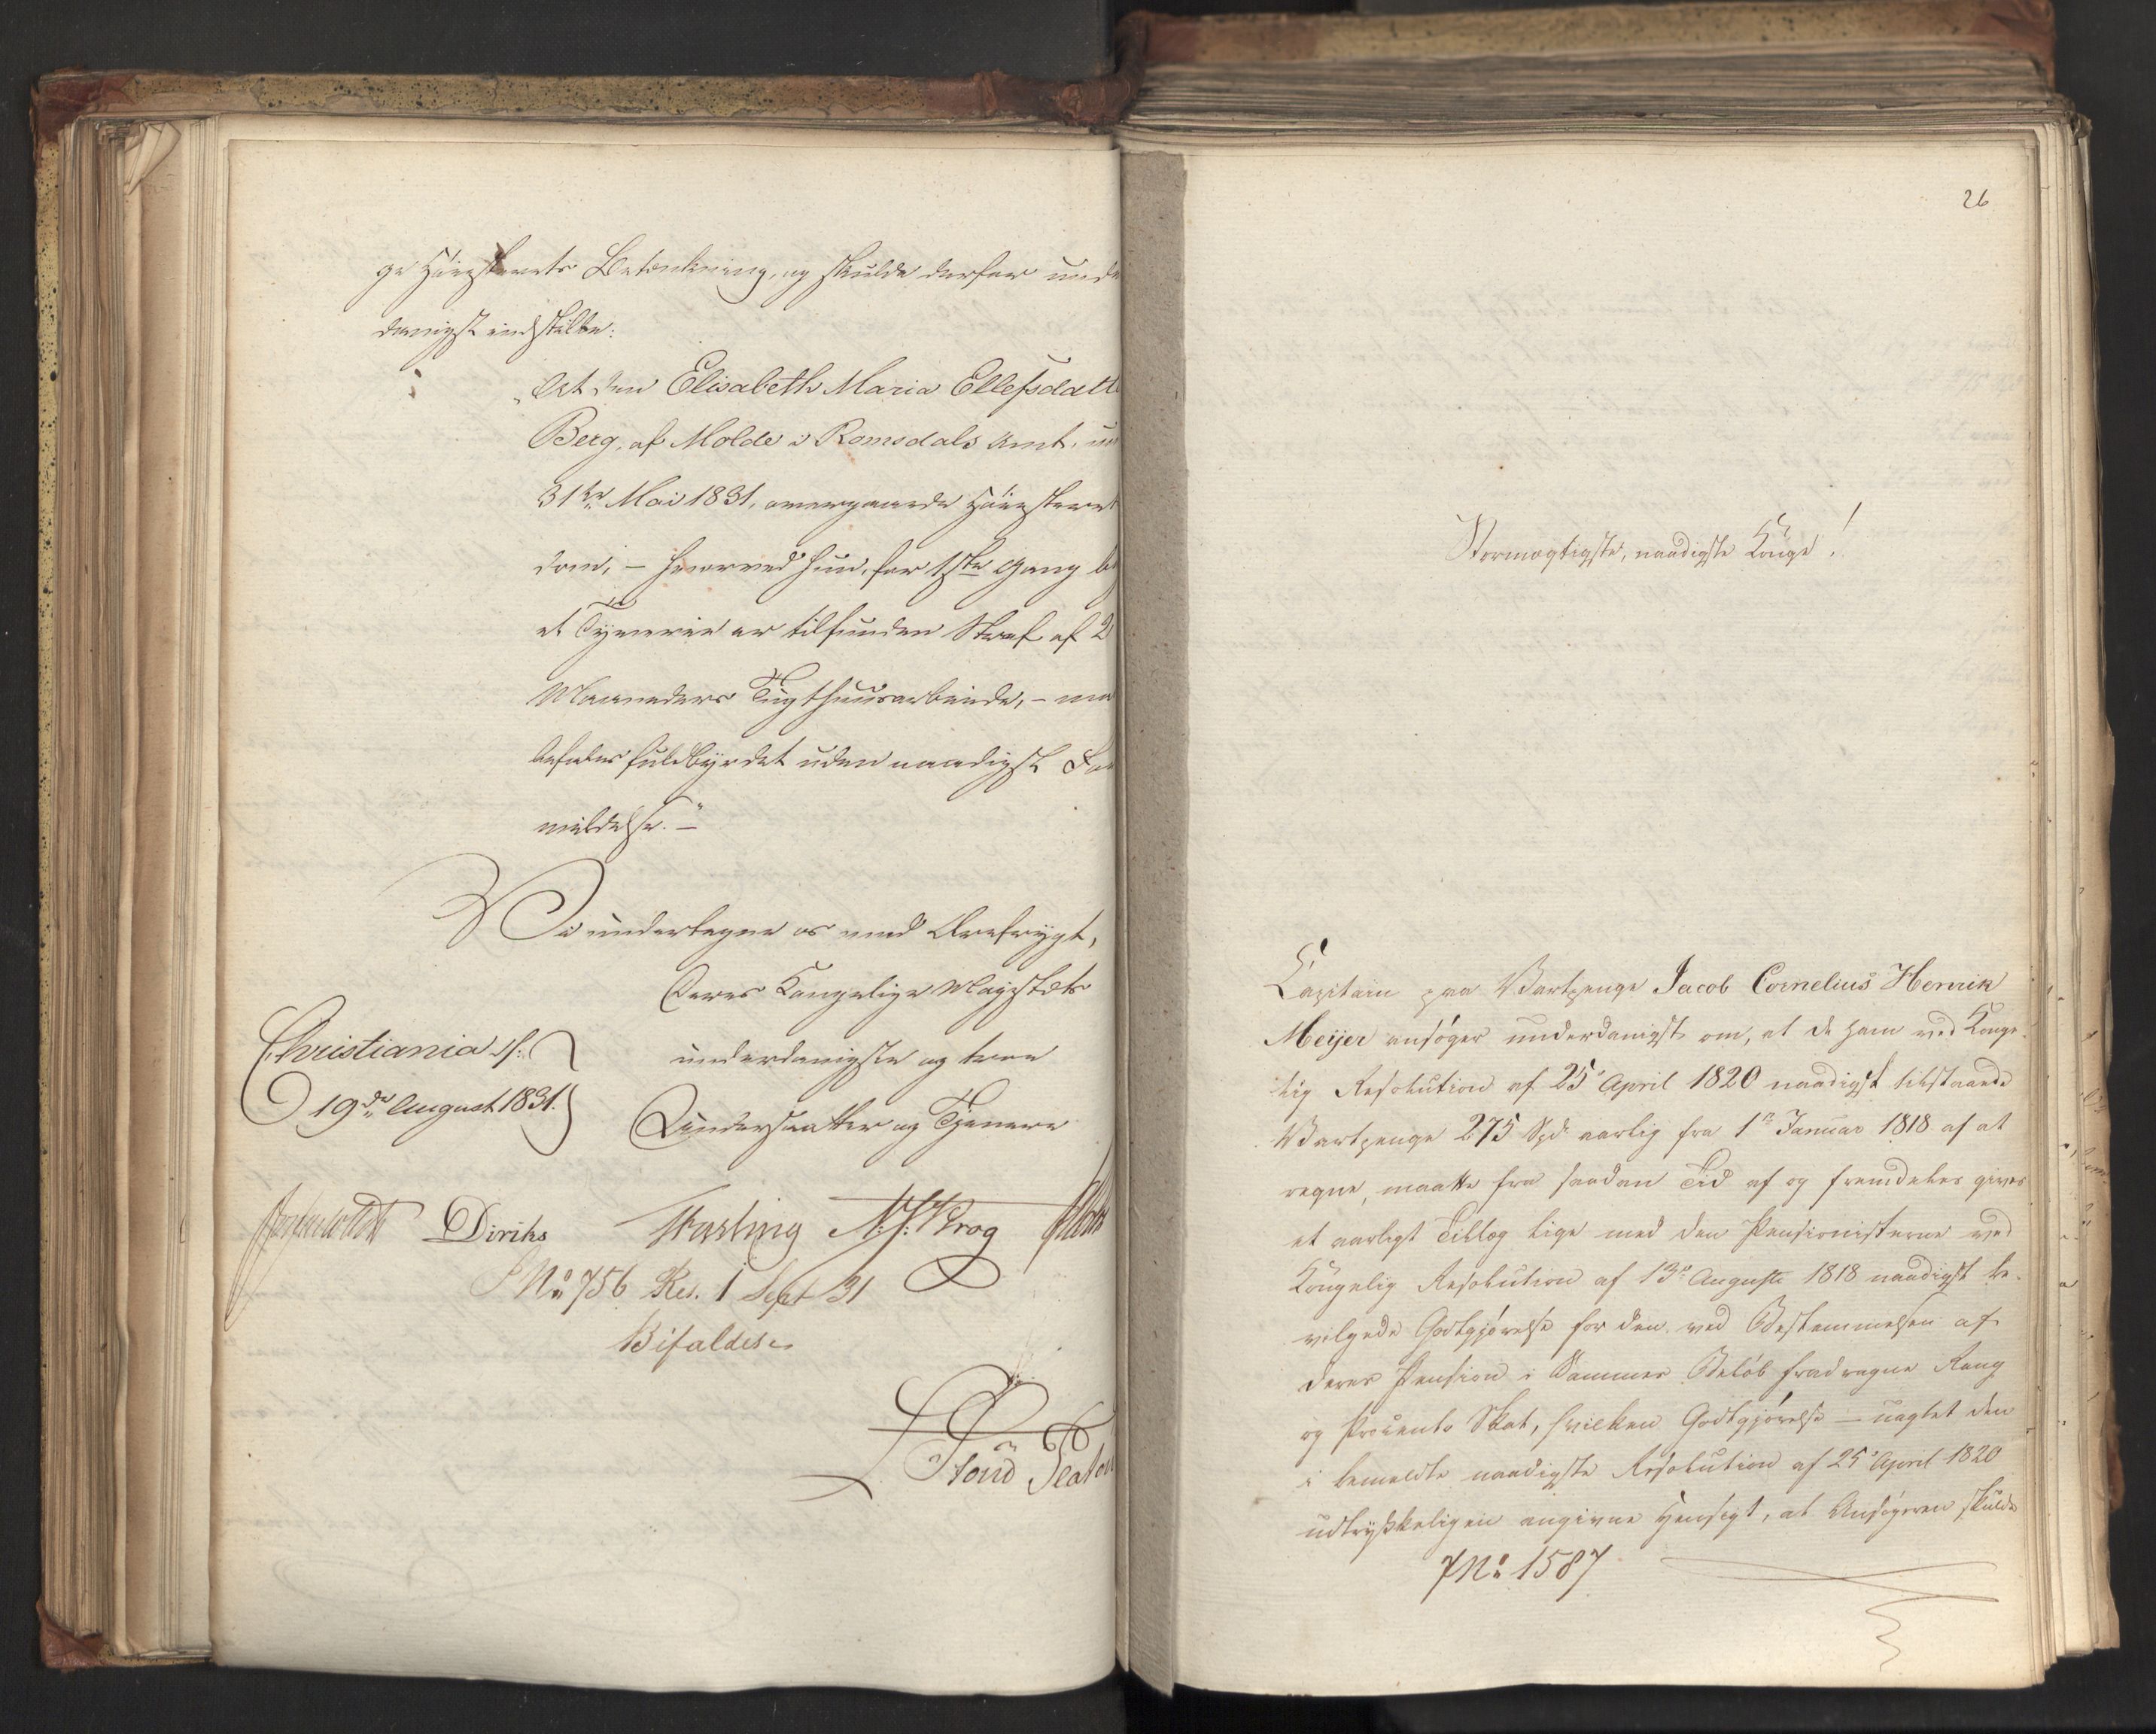 ge Høiesterets Betænkning, og skulde derfor unde
danigst indstille:
"At den Elisabeth Maria Ellefsdatte
Berg, af Molde i Romsdals Amt, un
31te Mai 1831, overgaaede Høiesteret
dom, – hvorved hun, for 1ste Gang be
et Tyverie er tilfunden Straf af 2
Maaneders Tugthuusarbeide, – maa
befales fuldbyrdet uden naadigst For
mildelse." –
Vi undertegne os med Ærefrygt,
Deres Kongelige Majestæts
Christiania d:
underdanigste og troe
19de August 1831.
Undersaatter og Tjenere
Diriks N. J. Krog
No 756 Res. 1 Sept 31
Bifaldes
26
Stormægtigste, naadigste Konge!
Capitain paa Vartpenge Jacob Cornelius Henrik
Meyer ansøger underdanigst om, at de ham ved Konge-
lig Resolution af 25 April 1820 naadigst tilstaaede
Vartpenge 275 Spd. aarlig fra 1ste Januar 1818 af at
regne, maatte fra saadan Tid af og fremdeles gives
et aarligt Tillæg lige med den Pensionisterne ved
Kongelig Resolution af 13de Augusti 1818 naadigst be-
vilgede Godtgjørelse for den ved Bestemmelsen af
deres Pension i Samme Beløb fradragne Rang
og Procents Skat, hvilken Godtgjørelse – uagtet den
i bemeldte naadigste Resolution af 25 April 1820
udtrykkeligen angivne Hensigt, at Ansøgeren skulde
JNo 1587